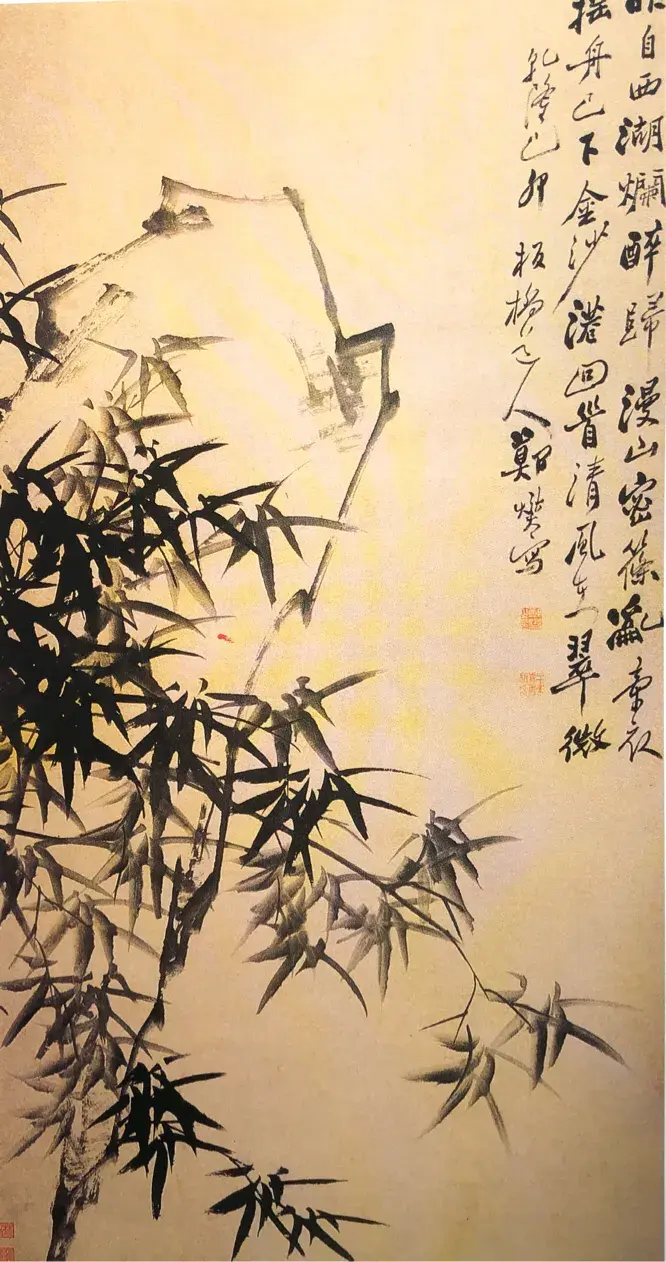 昨自西湖爛醉歸漫山密篠亂牽衣
搖舟已下金沙港回首清風在翠微
乾隆己卯板橋道人鄭燮寫